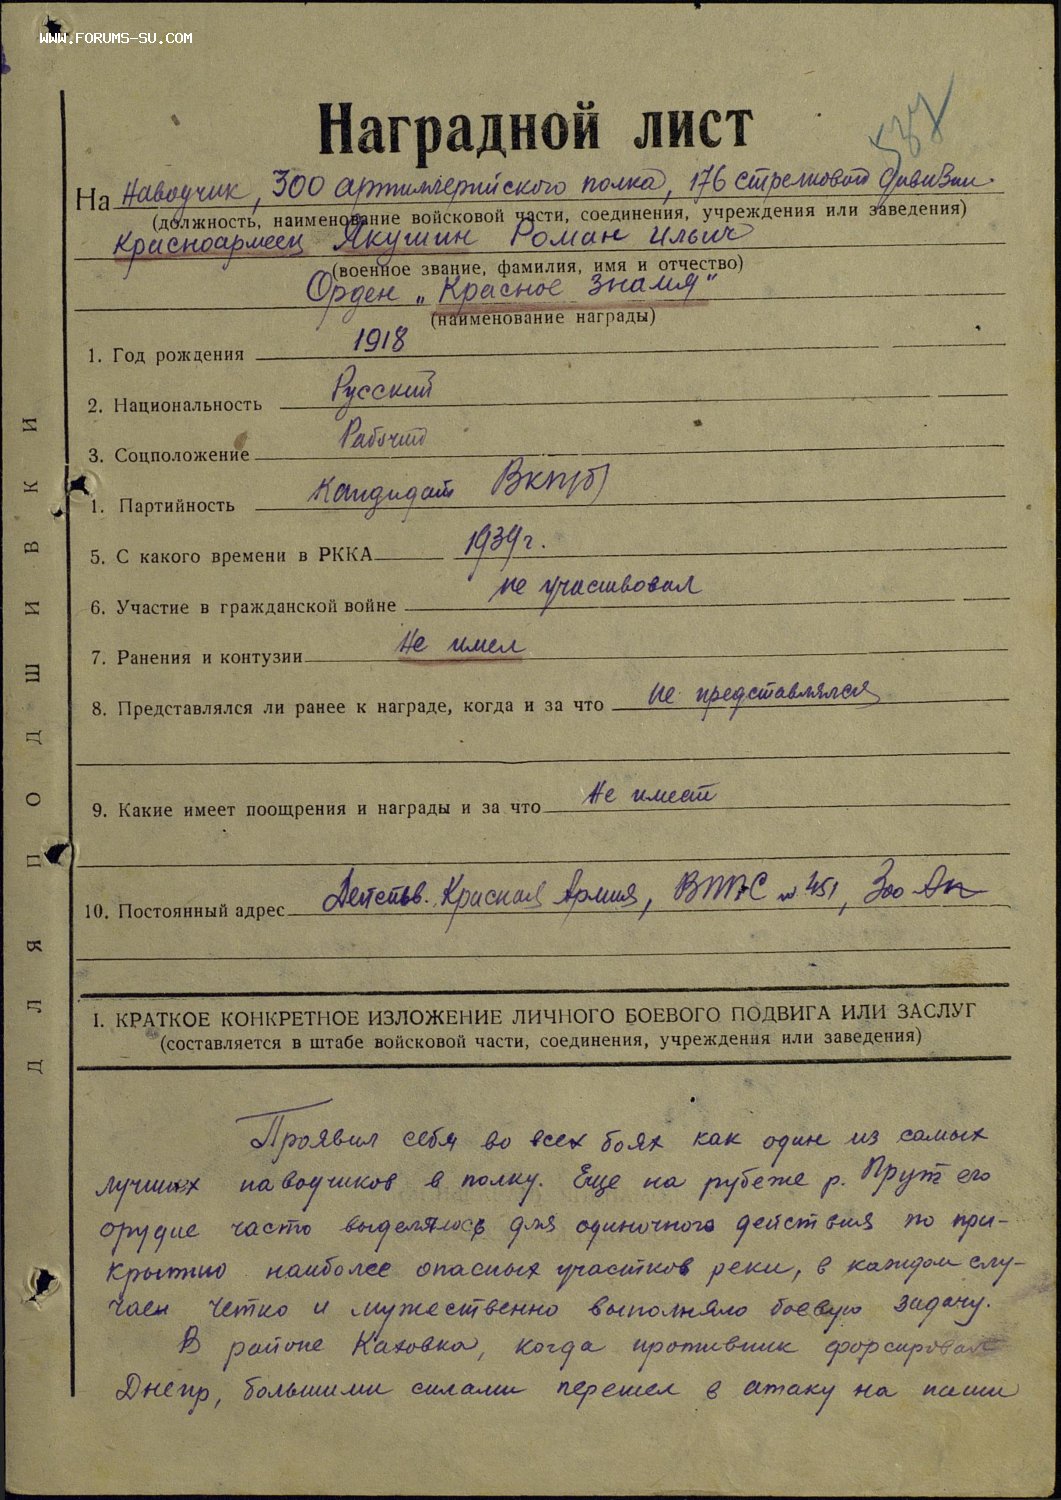 WWW.FORUMS-SU.COM
Наградной лист
537
На Наводчик, 300 артиллерийского полка, 176 стрелковой дивизии.
(должность, наименование войсковой части, соединения, учреждения или заведения)
Красноармеец Якушин Роман Ильич
(военное звание, фамилия, имя и отчество)
Орден „Красное знамя"
(наименование награды)
1. Год рождения 1918
2. Национальность Русский
3. Соцположение Рабочий
1. Партийность Кандидат ВКП(б)
5. С какого времени в РККА 1939 г.
6. Участие в гражданской войне не участвовал
7. Ранения и контузии Не имел
8. Представлялся ли ранее к награде, когда и за что не представлялся
9. Какие имеет поощрения и награды и за что Не имеет
10. Постоянный адрес Действ. Красная Армия, ВППС № 451, 300 Ап
ДЛЯ ПОДШИВКИ
I. КРАТКОЕ КОНКРЕТНОЕ ИЗЛОЖЕНИЕ ЛИЧНОГО БОЕВОГО ПОДВИГА ИЛИ ЗАСЛУГ
(составляется в штабе войсковой части, соединения, учреждения или заведения)
Проявил себя во всех боях как один из самых
лучших наводчиков в полку. Еще на рубеже р. Прут его
орудие часто выделялось для одиночного действия по при-
крытию наиболее опасных участков реки, в каждом слу-
чаен четко и мужественно выполняло боевую задачу.
В районе Каховка, когда противник форсировал
Днепр, большими силами перешел в атаку на наши